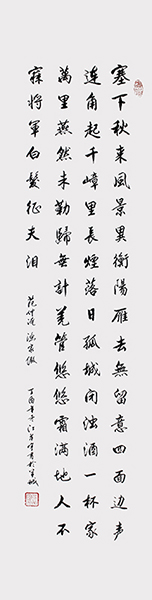 塞下秋來風景異衡陽雁去無留意四面边声
連角起千嶂里長煙落日孤城闭浊酒一杯家
萬里燕然未勒歸無計羌管悠悠霜滿地人不
寐將軍白髮征夫泪
范仲淹 渔家傲
丁酉年